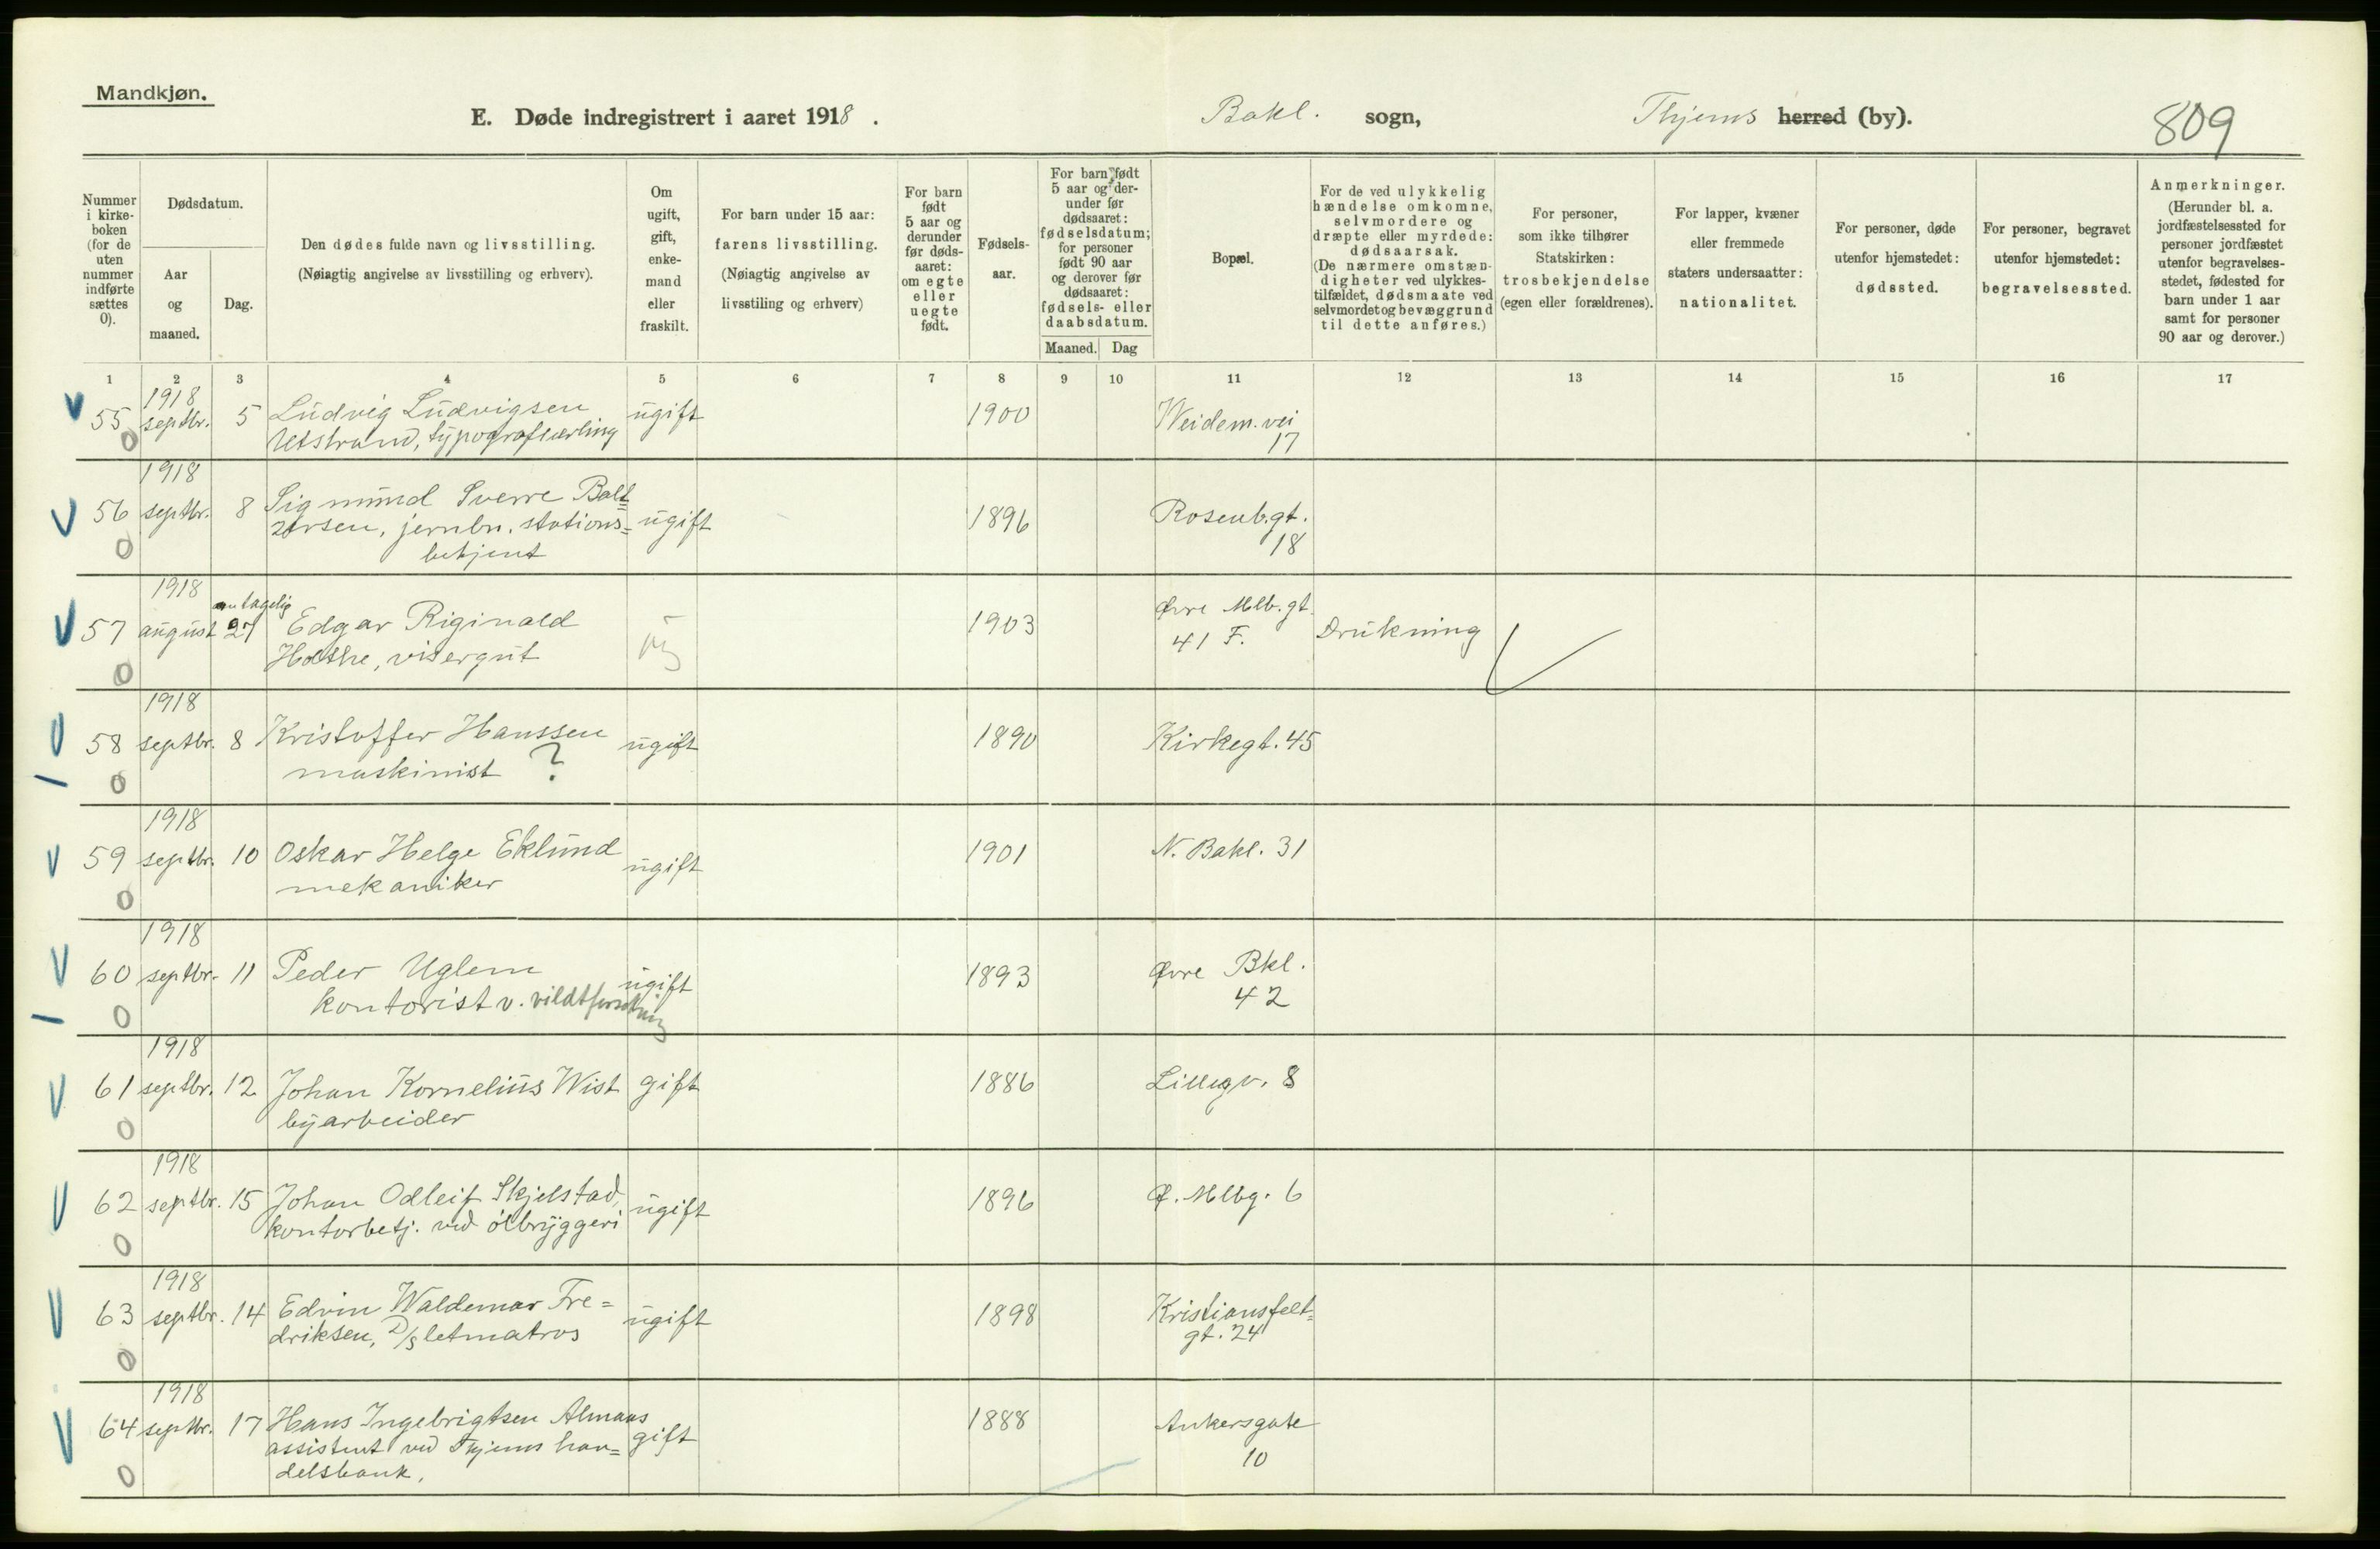 Mandkjøn.
E. Døde indregistrert i aaret 1918. Bakl. sogn, Thjems herred (by). 809
Nummer i kirkeboken (for de uten nummer indførte sættes 0).
Dødsdatum.
Aar og maaned.
Dag.
Den dødes fulde navn og livsstilling.
(Nøiagtig angivelse av livsstilling og erhverv).
Om ugift, gift, enkemand eller fraskilt.
For barn under 15 aar: farens livsstilling.
(Nøiagtig angivelse av livsstiling og erhverv)
For barn født 5 aar og derunder før dødsaaret: om egte eller uegte født.
Fødselsaar.
For barn født 5 aar og derunder før dødsaaret: fødselsdatum; for personer født 90 aar og derover før dødsaaret: fødsels- eller daabsdatum.
Maaned. Dag
Bopæl.
For de ved ulykkelig hændelse omkomne, selvmordere og dræpte eller myrdede: dødsaarsak.
(De nærmere omstændigheter ved ulykkestilfældet, dødsmaate ved selvmordet og bevæggrund til dette anføres.)
For personer, som ikke tilhører Statskirken: trosbekjendelse (egen eller forældrenes).
For lapper, kvæner eller fremmede staters undersaatter: nationalitet.
For personer, døde utenfor hjemstedet: dødssted.
For personer, begravet utenfor hjemstedet: begravelsessted.
Anmerkninger.
(Herunder bl. a. jordfæstelsessted for personer jordfæstet utenfor begravelsesstedet, fødested for barn under 1 aar samt for personer 90 aar og derover.)
1 2 3 4 5 6 7 8 9 10 11 12 13 14 15 16 17
1918
55 septbr. 5 Ludvig Ludvigsen ugift 1900 Weidem. vei
0 Utstrand, typograflærling 17
1918
56 septbr. 8 Sigmund Sverre Balt= ugift 1896 Rosenb.gt.
zersen, jernbn. stations= 18
0 betjent
1918
antagelig
57 august 27 Edgar Riginald 1903 Øvre Mlb. gt. Drukning
0 Holthe, visergut ug 41 F.
1918
58 septbr. 8 Kristoffer Hanssen ugift 1890 Kirkegt. 45
0 maskinist ?
1918
59 septbr. 10 Oskar Helge Eklund ugift 1901 N. Bakl. 31
0 mekaniker
1918
60 septbr. 11 Peder Uglem ugift 1893 Øvre Bkl.
0 kontorist v. vildtforretning 42
1918
61 septbr. 12 Johan Kornelius Wist gift 1886 Lillegv. 8
0 byarbeider
1918
62 septbr. 15 Johan Odleif Skjelstad, ugift 1896 Ø. Mlbg. 6
0 kontorbetj. ved ølbryggeri
1918
63 septbr. 14 Edvin Waldemar Fre= ugift 1898 Kristiansfelt=
0 driksen, D/s letmatros gt. 24
1918
64 septbr. 17 Hans Ingebrigtsen Almaas gift 1888 Ankersgate
assistent ved Thjems han= 10
0 delsbank.